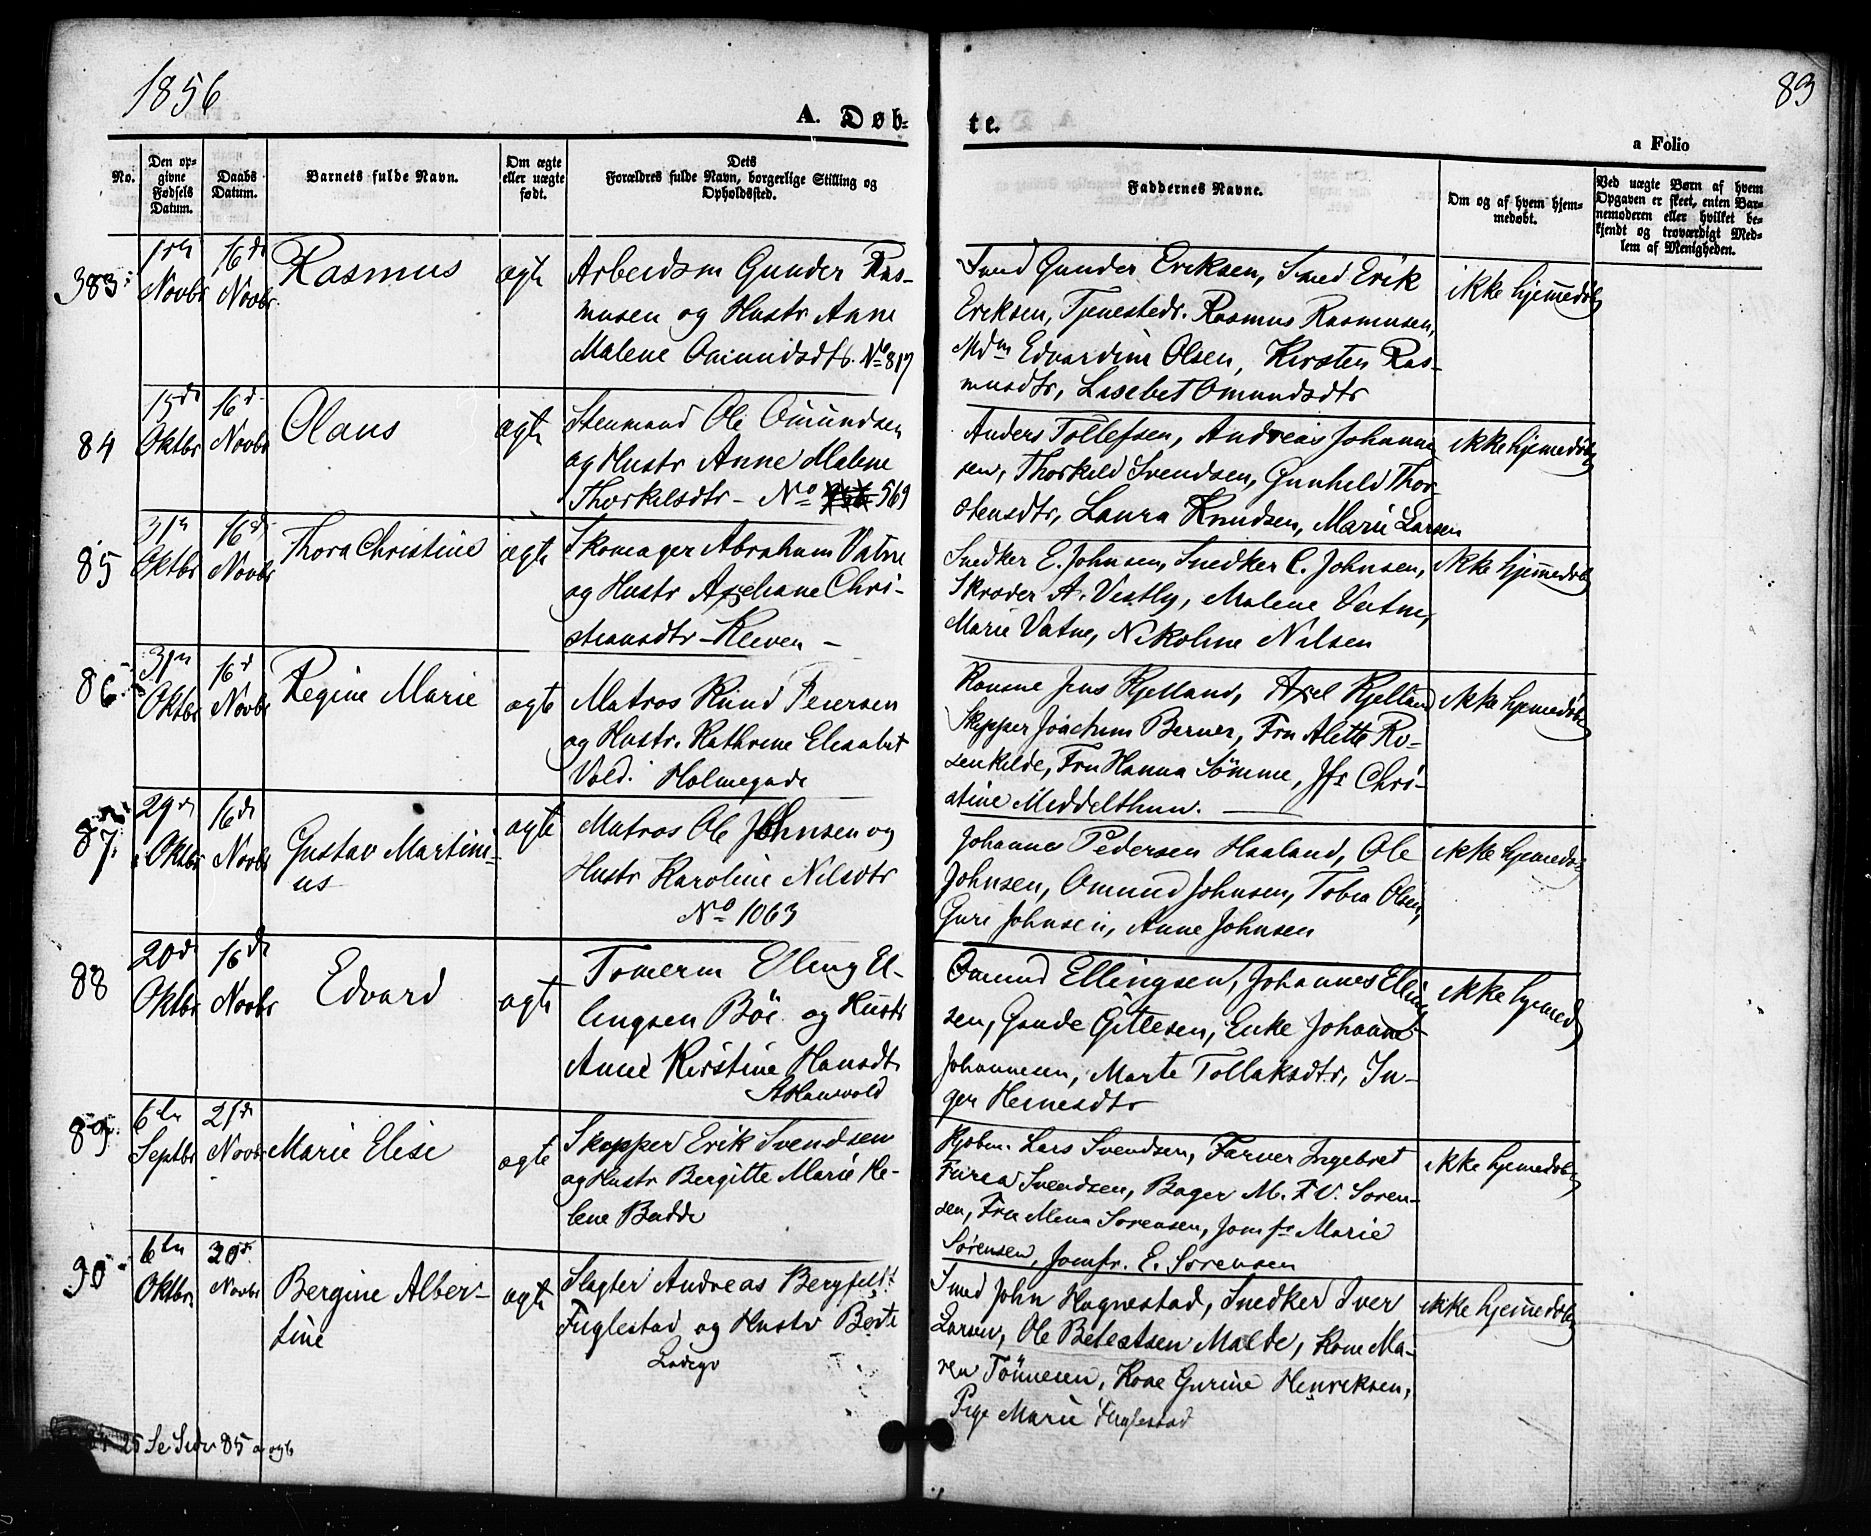 1856
83
A. Døb-
te.
a Folio
No.
Den op-
givne
Fødsels
Datum.
Daabs
Datum.
Barnets fulde Navn.
Om ægte
eller uægte
født.
Dets
Forældres fulde Navn, borgerlige Stilling og
Opholdssted.
Faddernes Navne.
Om og af hvem hjem-
medøbt.
Ved uægte Børn af hvem
Opgaven er skeet, enten Bar-
nemoderen eller hvilket be-
kjendt og troværdigt Med-
lem af Menigheden.
383
Novbr
16de
Novbr
Rasmus
ægte
Arbeidsm Gunder Ras-
musen og Hustr Anne
Malene Omundsdtr. No 817
Smed Gunder Eriksen, Smed Erik
Eriksen, Tjenestedr. Rasmus Rasmusen,
Mdm Edvardine Olsen, Kirsten Ras-
musdtr, Lisebet Omundsdtr
ikke hjemmedøbt
84
15de
Oktbr
16de
Novbr
Olaus
ægte
Stenmand Ole Omundsen
og Hustr Anne Malene
Thorkelsdtr - No 569
Anders Tollefsen, Andreas Johanne
sen, Thorkild Svendsen, Gunhild Thor-
stensdtr, Laura Knudsen, Marie Larsen
ikke hjemmedøbt
85
31te
Oktbr
16de
Novbr
Thora Christine
ægte
Skomager Abraham Vatne
og Hustr Axeliane Chri-
stiansdtr - Kleven -
Snedker E. Johnsen, Snedker C. Johnsen,
Skrøder A. Vestly, Malene Vatne,
Marie Vatne, Nikoline Nilsen
ikke hjemmedøbt
86
31te
Oktbr
16de
Novbr
Regine Marie
ægte
Matros Knud Petersen
og Hustr. Kathrine Elisabet
Vold. Holmegade
Konsne Jens Kjelland, Axel Kjelland
Skipper Joachim Berner, Fru Alette Ro-
senkilde, Fru Hanna Sømme, Jfr Chri-
stine Middelthun.
ikke hjemmedøbt
87
29de
Oktbr
16de
Novbr
Gustav Martini-
us
ægte
Matros Ole Johnsen og
Hustr Karoline Nilsdtr
No 1063
Johannes Pedersen Haaland, Ole
Johnsen, Omund Johnsen, Tobia Olsen,
Guri Johnsen, Anne Johnsen
ikke hjemmedøbt
88
20de
Oktbr
16de
Novbr
Edvard
ægte
Tømerm Elling El-
lingsen Bøe og Hustr
Anne Kirstine Hansdtr
Omund Ellingsen, Johannes Elling
sen, Gunde Gittesen, Enke Johanne
Johannesen, Marte Tollaksdtr, In-
ger Heinesdtr
ikke hjemmedøbt
89
6te
Septbr
21de
Novbr
Marie Elise
ægte
Skipper Erik Svendsen
og Hustr Bergitte Marie He-
lene Budde
Kjøbm. Lars Svendsen, Farver Ingebret
Svendsen, Bager M. F. V. Soren-
sen, Fru Mina Sorensen, Jomfr Marie
Sørensen, Jomfr. E. Sorensen
ikke hjemmedøbt
90
6te
Oktbr
Novbr
Bergine Alber-
tine
ægte
Slagter Andreas Bergfeldt
Fuglestad og Hustr Berte
Ladegr
Smed John Hognestad, Snedker Iver
Larsen, Ole Beteatsen Malde, Kone Ma-
ren Tönnesen, Kone Gurine Henriksen,
Pige Marie Fuglestad
ikke hjemmedøbt
25 Se Side 85 a og b